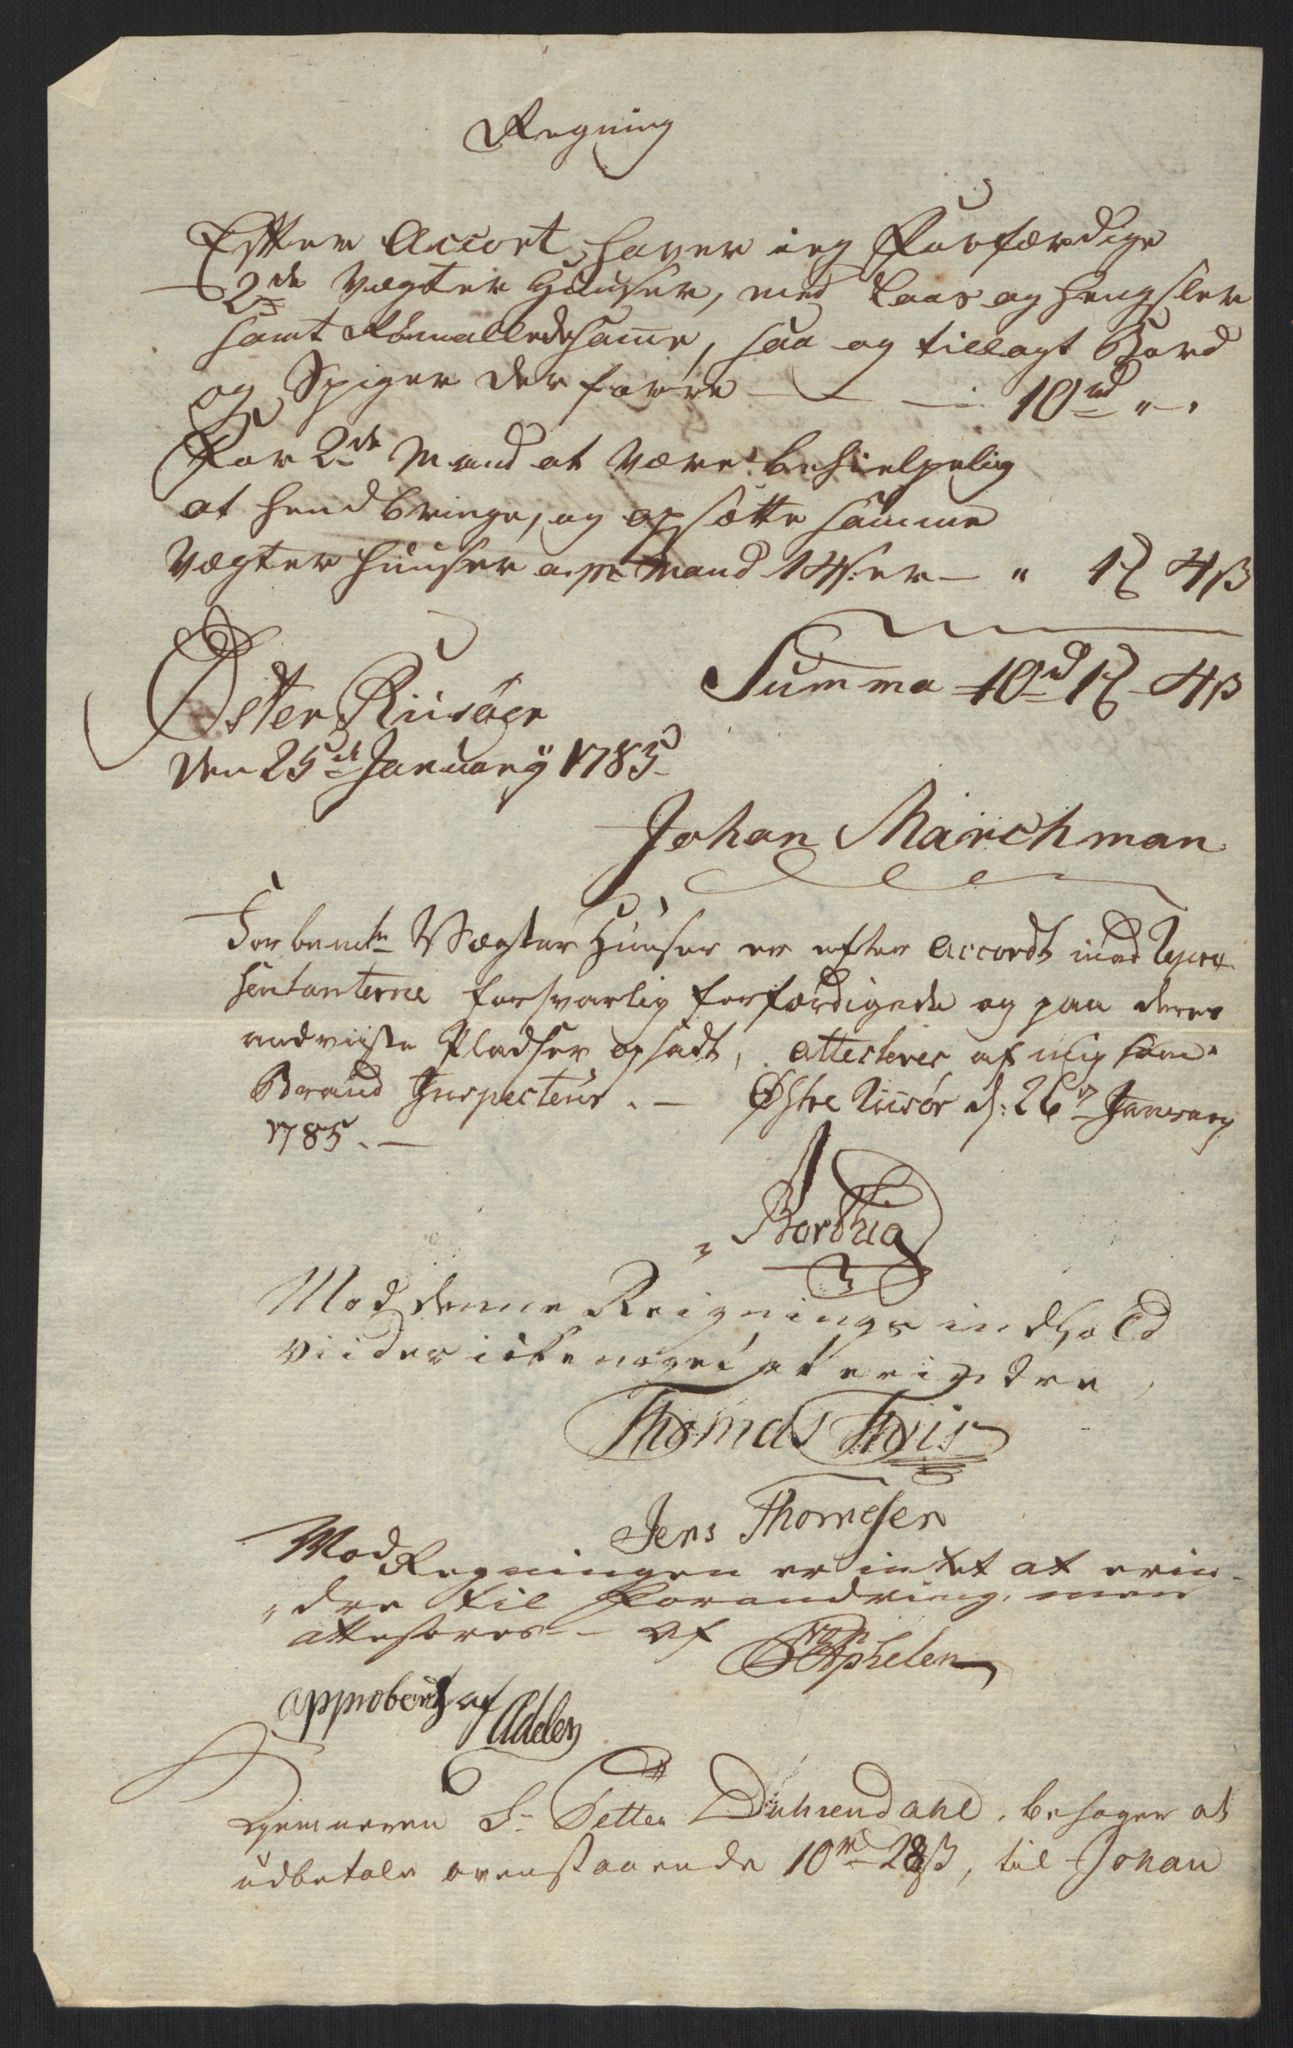 Regning
Efter Accort haver ieg Forfærdige
2de Vægter Huuser, med Laas og Hengsler
samt malledesamme, saa og tillagt Bord
og Spiger der forre — — — 10rd " - "
For 2de Mand at være behielpelig
at hend bringe, og opsætte samme
Vægter huuser a pr Mand 14s: er — " 1 4ß
Summa 10rd 1 4ß
Øster Riisöer
den 25de Januarÿ 1785
Johan Marchman
Forbemte Vægter Huuser er efter Accordt med Repræ-
sentanterne forsvarlig forfærdigede og paa deres
andviiste Pladser opsadt, attesteres af mig som
Brand Inspecteur. — Østre Riisör d: 26 January
1785. —
Mod denne Reignings indhold
viider icke noget at erindre
Thomas Friis
Jens Thomesen
Mod Regningen er intet at erin-
dre til Forandring, men
attesteres — af
Aphelen
approbert af Adeler
Kemneren Sr Petter Duhrendahl behager at
udbetale ovenstaaende 10rd 28ß, til Johan